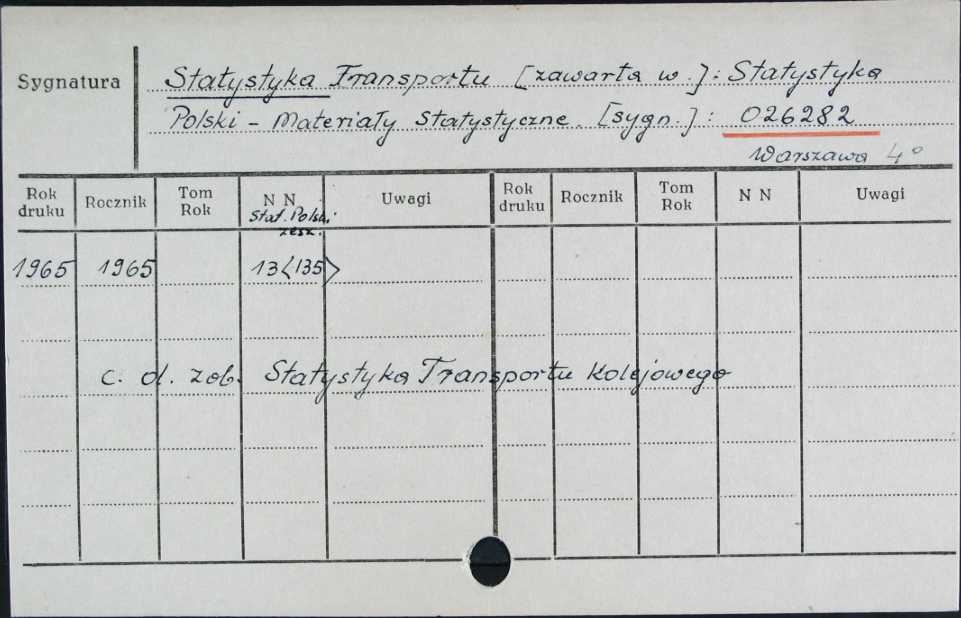 Sygnatura
Statystyka Transportu [zawarta w.]: Statystyka
Polski - Materiały Statystyczne. [sygn.]: 026282
Warszawa 4°
Rok druku Rocznik Tom Rok N N Uwagi Rok druku Rocznik Tom Rok N N Uwagi
Stat. Polski
zesz.
1965 1965 13<135>
c. d. zob. Statystyka Transportu Kolejowego